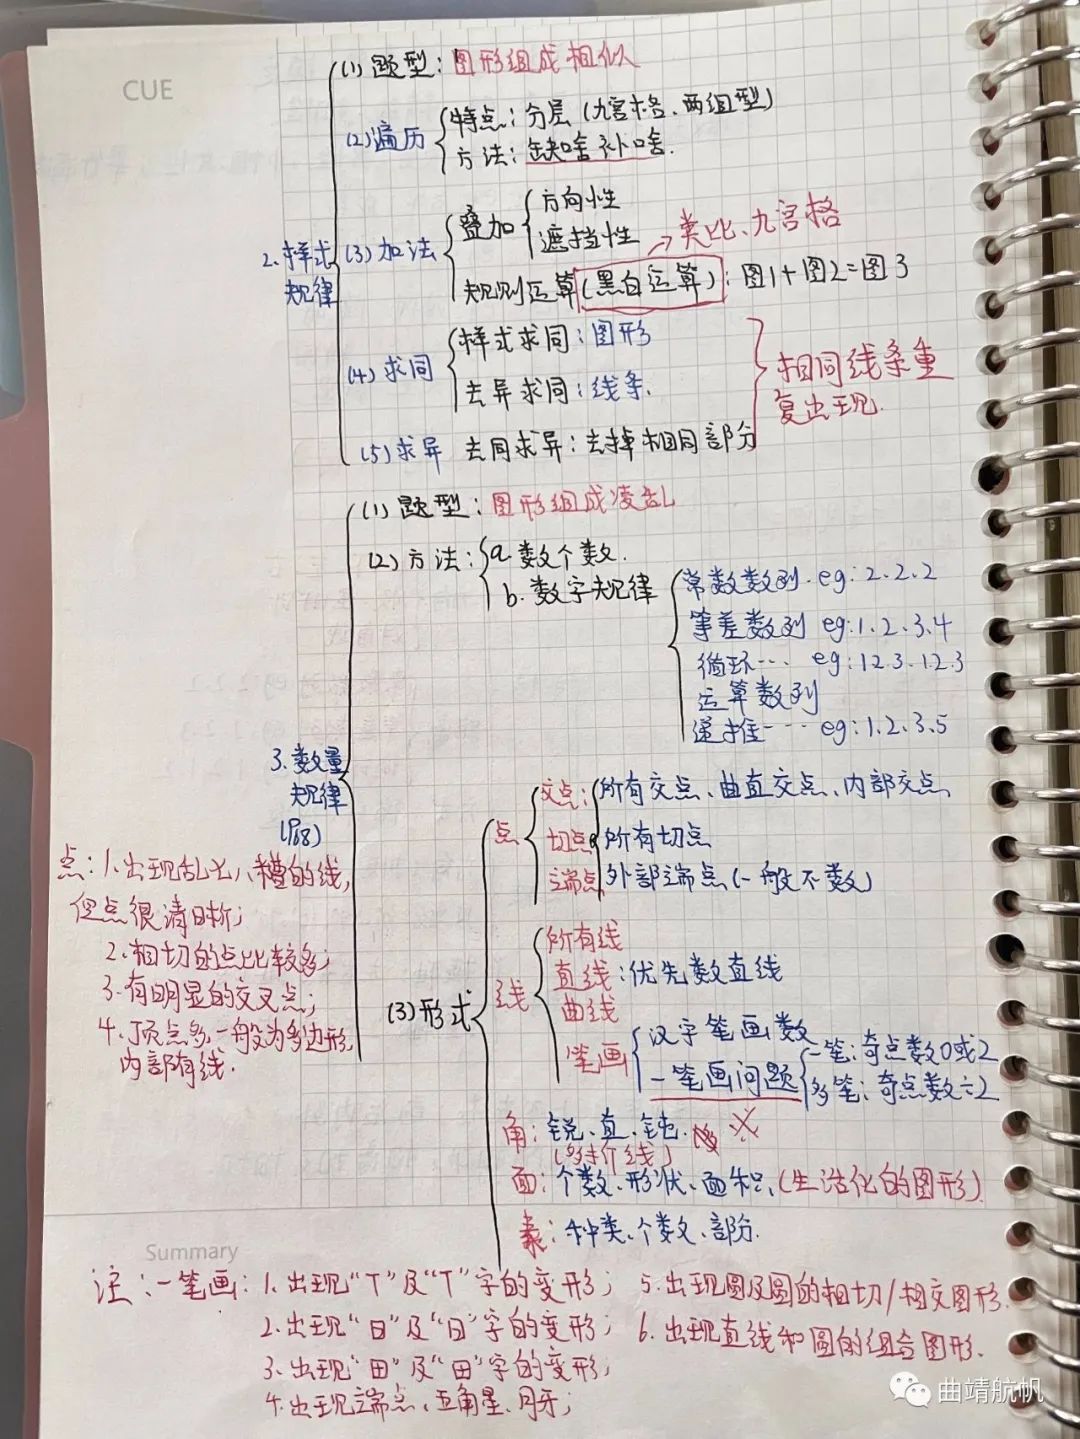 CUE
2.样式规律
(1)题型：图形组成相似
(2)遍历
特点：分层（九宫格、两组型）
方法：缺啥补啥.
(3)加法
叠加
方向性
遮挡性
→类比、九宫格
规则运算(黑白运算)：图1+图2=图3
(4)求同
样式求同：图形
去异求同：线条.
相同线条重
复出现.
(5)求异 去同求异：去掉相同部分
3.数量
规律
(1)题型：图形组成凌乱
(2)方法：
a.数个数.
b.数字规律
常数数列.eg:2.2.2
等差数列 eg:1.2.3.4
循环… eg:1.2.3.1.2.3
运算数列
递推… eg:1.2.3.5
(3)形式
点
交点：所有交点、曲直交点、内部交点
切点 所有切点
端点 外部端点(一般不数)
线
所有线
直线：优先数直线
曲线
笔画
汉字笔画数
一笔画问题
一笔：奇点数0或2
多笔：奇点数÷2
角：锐、直、钝.
面：个数、形状、面积、(生活化的图形)
素：种类、个数、部分.
点：1.出现乱七八糟的线，
但点很清晰；
2.相切的点比较多；
3.有明显的交叉点；
4.顶点多,一般为多边形,
内部有线.
Summary
注：一笔画：1.出现“T”及“T”字的变形；
2.出现“日”及“日”字的变形；
3.出现“田”及“田”字的变形；
4.出现端点、五角星、月牙；
5.出现圆及圆的相切/相交图形.
6.出现直线和圆的组合图形.
曲靖航帆